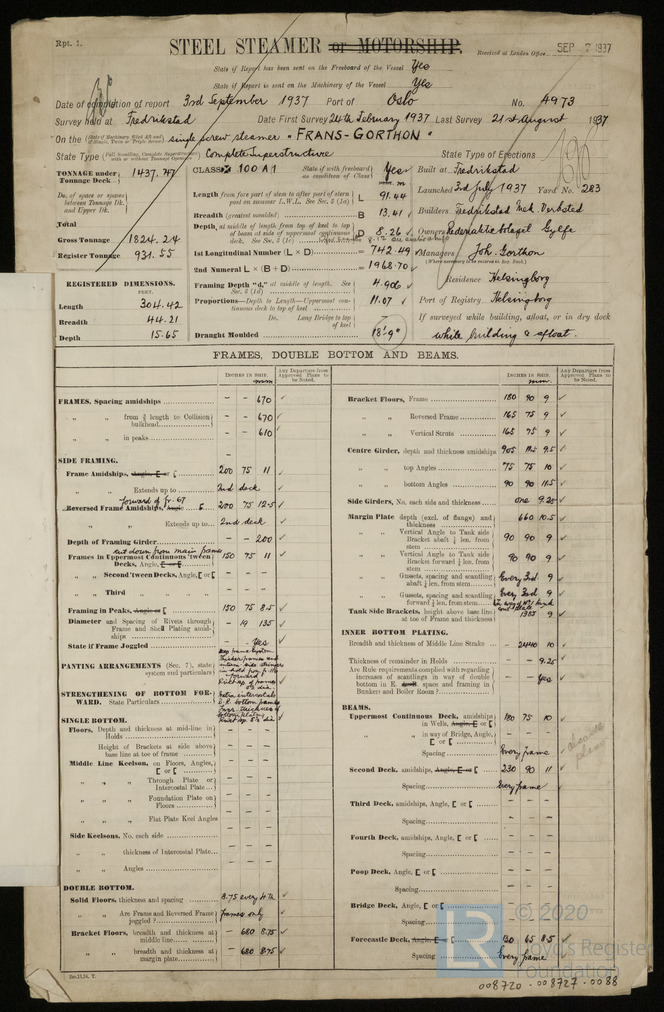 Rpt. 1.
STEEL STEAMER or MOTORSHIP.
Received at London Office SEP 7 1937
State if Report has been sent on the Freeboard of the Vessel Yes
State if Report is sent on the Machinery of the Vessel Yes
Date of completion of report 3rd September 1937 Port of Oslo No. 4973
Survey held at Fredrikstad Date First Survey 24th February 1937 Last Survey 21st August 1937
On the single screw steamer "FRANS-GORTHON"
State Type Complete Superstructure State Type of Erections
TONNAGE under Tonnage Deck 1437.77
Do. of space or spaces between Tonnage Dk. and Upper Dk.
Total
Gross Tonnage 1824.24
Register Tonnage 931.55
CLASS 100 A1 State if with freeboard as condition of Class Yes
Length from fore part of stem to after part of stern post on summer L.W.L. See Sec. 3 (1a) L 91.44
Breadth (greatest moulded) B 13.41
Depth, at middle of length from top of keel to top of beam at side of uppermost continuous deck. See Sec. 3 (1c) D 8.26
1st Longitudinal Number (L × D) = 742.49
2nd Numeral L × (B + D) = 1968.70
Framing Depth "d," at middle of length. See Sec. 3 (1d) 4.906
Proportions—Depth to Length—Uppermost continuous deck to top of keel 11.07
Do. Long Bridge to top of keel
Draught Moulded 18'-9"
Built at Fredrikstad
Launched 3rd July 1937 Yard No. 283
Builders Fredrikstad Mek Verksted
Owners Rederiaktiebolaget Gylfe
Managers Joh. Gorthon
Residence Helsingborg
Port of Registry Helsingborg
If surveyed while building, afloat, or in dry dock
while building & afloat.
REGISTERED DIMENSIONS.
FEET.
Length 304.42
Breadth 44.21
Depth 15.65
FRAMES, DOUBLE BOTTOM AND BEAMS.
INCHES IN SHIP. mm
Any Departure from Approved Plans to be Noted.
FRAMES, Spacing amidships - - 670
" " from ⅗ length to Collision bulkhead - - 670
" " in peaks - - 610
SIDE FRAMING.
Frame Amidships, Angle, E or [ 200 75 11
" " Extends up to 2nd deck
forward of fr. 67
Reversed Frame Amidships, Angle [ 200 75 12.5
" " Extends up to 2nd deck
Depth of Framing Girder - - 200
cut down from main frames
Frames in Uppermost Continuous 'tween Decks, Angle, E or [ 150 75 11
" " Second 'Tween Decks, Angle, [ or [ - - -
" " Third " " - - -
Framing in Peaks, Angle or [ 150 75 8.5
Diameter and Spacing of Rivets through Frame and Shell Plating amidships - 19 135
State if Frame Joggled - Yes
PANTING ARRANGEMENTS (Sec. 7), state system and particulars
STRENGTHENING OF BOTTOM FORWARD. State Particulars
SINGLE BOTTOM.
Floors, Depth and thickness at mid-line in Holds - - -
Height of Brackets at side above base line at toe of frame - - -
Middle Line Keelson, on Floors, Angles, [ or [ - - -
" " Through Plate or Intercostal Plate - - -
" " Foundation Plate on Floors - - -
" " Flat Plate Keel Angles - - -
Side Keelsons, No. each side - - -
" " thickness of Intercostal Plate - - -
" " Angles - - -
DOUBLE BOTTOM.
Solid Floors, thickness and spacing 8.75 every 4th
" " Are Frame and Reversed Frame joggled? frames only
Bracket Floors, breadth and thickness at middle line - 680 8.75
" " breadth and thickness at margin plate - 680 8.75
INCHES IN SHIP. mm.
Any Departure from Approved Plans to be Noted.
Bracket Floors, Frame 180 90 9
" " Reversed Frame 165 75 9
" " Vertical Struts 165 75 9
Centre Girder, depth and thickness amidships 905 11.5 9.5
" " top Angles 75 75 10
" " bottom Angles 90 90 11.5
Side Girders, No. each side and thickness one 9.25
Margin Plate depth (excl. of flange) and thickness 660 10.5
" " Vertical Angle to Tank side Bracket abaft ¼ len. from stem 90 90 9
" " Vertical Angle to Tank side Bracket forward ¼ len. from stem 90 90 9
" " Gussets, spacing and scantling abaft ¼ len. from stem Every 3rd 9
" " Gussets, spacing and scantling forward ¼ len. from stem Every 3rd 9
Tank Side Brackets, height above base line at toe of Frame and thickness 1385 9
INNER BOTTOM PLATING.
Breadth and thickness of Middle Line Strake - 2440 10
Thickness of remainder in Holds - - 9.25
Are Rule requirements complied with regarding increases of scantlings in way of double bottom in E. space and framing in Bunkers and Boiler Room? - Yes
BEAMS.
Uppermost Continuous Deck, amidships in Wells, Angle, E or [ 180 75 10
" " in way of Bridge, Angle, [ or [ - - -
Spacing Every frame
Second Deck, amidships, Angle, E or [ 230 90 11
Spacing Every frame
Third Deck, amidships, Angle, [ or [ - - -
Spacing
Fourth Deck, amidships, Angle, [ or [ - - -
Spacing
Poop Deck, Angle, [ or [ - - -
Spacing
Bridge Deck, Angle, [ or [ - - -
Spacing
Forecastle Deck, Angle, E or [ 130 65 8.5
Spacing Every frame
LR
© 2020
Lloyd's Register
Foundation
008720-008727-0088